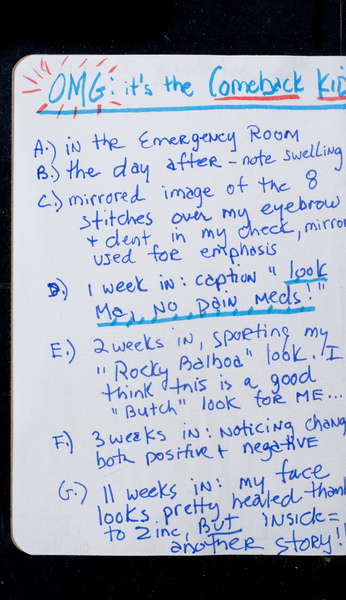 OMG: it's the Comeback KID
A.) in the Emergency Room
B.) the day after - note swelling
C.) mirrored image of the 8
stitches over my eyebrow
+ dent in my cheek, mirror
used for emphasis
D.) 1 week in: caption "look
Ma, No pain Meds!"
E.) 2 weeks in, sporting my
"Rocky Balboa" look. I
think this is a good
"Butch" look for ME...
F.) 3 weeks in: Noticing chang
both positive + negative
G.) 11 weeks in: my face
looks pretty healed thank
to Zinc, BUT inside =
another story!!